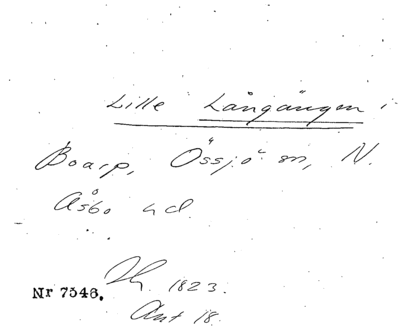 Lille Långängen i
Boarp, Össjö sn, N.
Åsbo hd.
1823.
Nr 7546.
Ant 18.